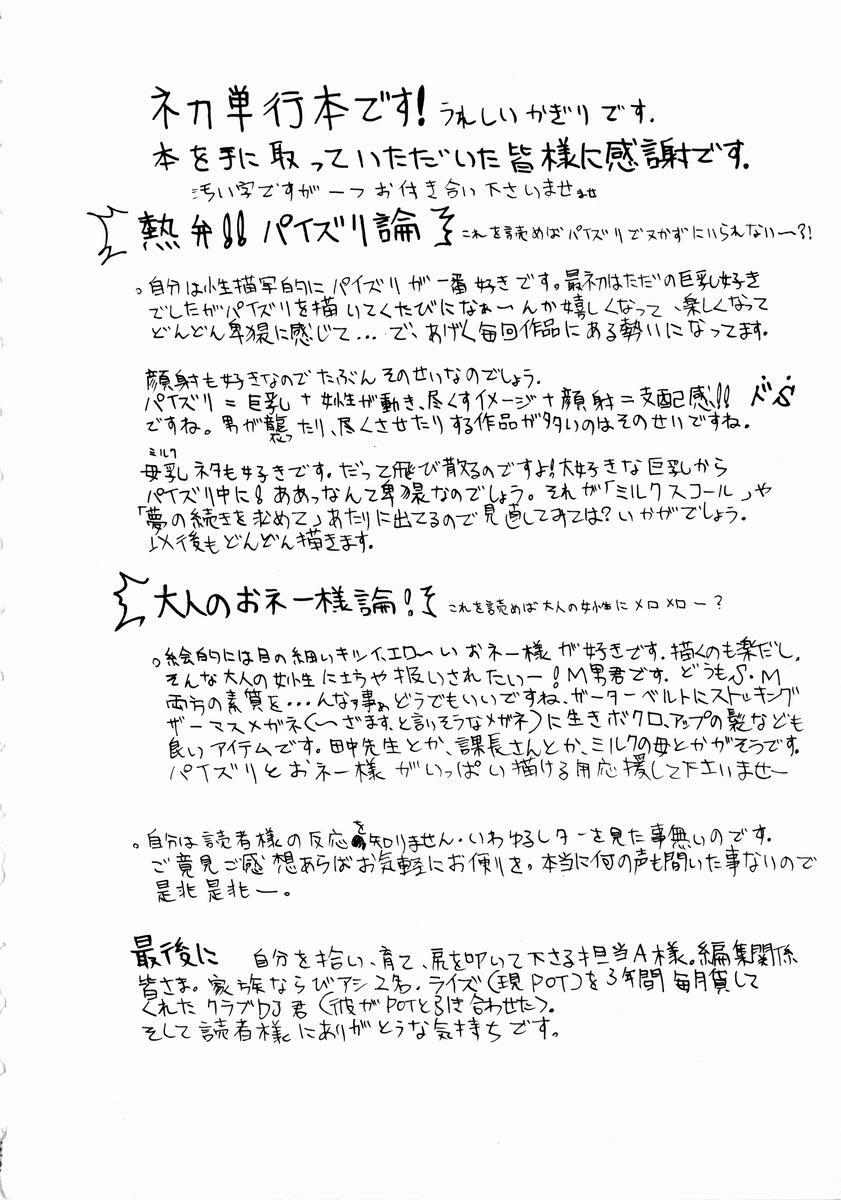 ネカ単行本です! うれしいかぎりです.
本を手に取っていただいた皆様に感謝です.
汚い字ですが一つお付き合い下さいませませ
熱弁!! パイズリ論 これを読めばパイズリでヌかずにいられないー?!
。自分は性描写的にパイズリが一番好きです。最初はただの巨乳好き
でしたがパイズリを描いてくたびになぁーんか嬉しくなって、楽しくなって
どんどん卑猥に感じて...で、あげく毎回作品にある勢いになってます.
顔射も好きなのでたぶんそのせいなのでしょう.
パイズリ=巨乳+女性が動き、尽くすイメージ+顔射=支配感!! ドS
ですね。男が襲ったり、尽くさせたりする作品が多いのはそのせいですね.
母乳ネタも好きです.だって飛び散るのですよ!大好きな巨乳から
ミルク
パイズリ中に!ああっなんて卑猥なのでしょう。それが「ミルクスコール」や
「夢の続きを求めて」あたりに出てるので見直してみては?いかがでしょう.
以後もどんどん描きます.
大人のおネー様論! これを読めば大人の女性にメロメロー?
。絵的には目の細いキツイ、エロ〜いおネー様が好きです.描くのも楽だし、
そんな大人の女性に土ちや扱いされたいー!M男君です.どうもS・M
両方の素質を...んなァ事ぁどうでもいいですね、ガーターベルトにストッキング
ザーマスメガネ(〜ざます、と言りそうなメガネ)に生きボクロ、アップの髪なども
良いアイテムです.田中先生とか、課長さんとか、ミルクの母とかがそうです.
パイズリとおネー様がいっぱい描ける用応援して下さいませー
。自分は読者様の反応を知りません.いわゆるレターを見た事無いのです.
ご意見ご感想あらばお気軽にお便りを。本当に何の声も聞いた事ないので
是非是非ー。
最後に 自分を拾い、育て、尻を叩いて下さる担当A様。編集関係
皆さま。家族ならびアシ2名.ライズ(現POT)を3年間毎月貸して
くれたクラブDJ君(彼がPOTと引き合わせた).
そして読者様にありがとうな気持ちです。